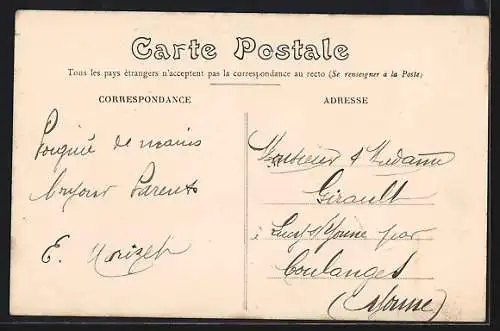 Carte Postale
Tous les pays étrangers n'acceptent pas la correspondance au recto (Se renseigner à la Poste)
CORRESPONDANCE
ADRESSE
Poignée de mains
Bonjour Parents
E. Morizet
Monsieur & Madame
Girault
à Lucy s/Yonne par
Coulanges
(Yonne)